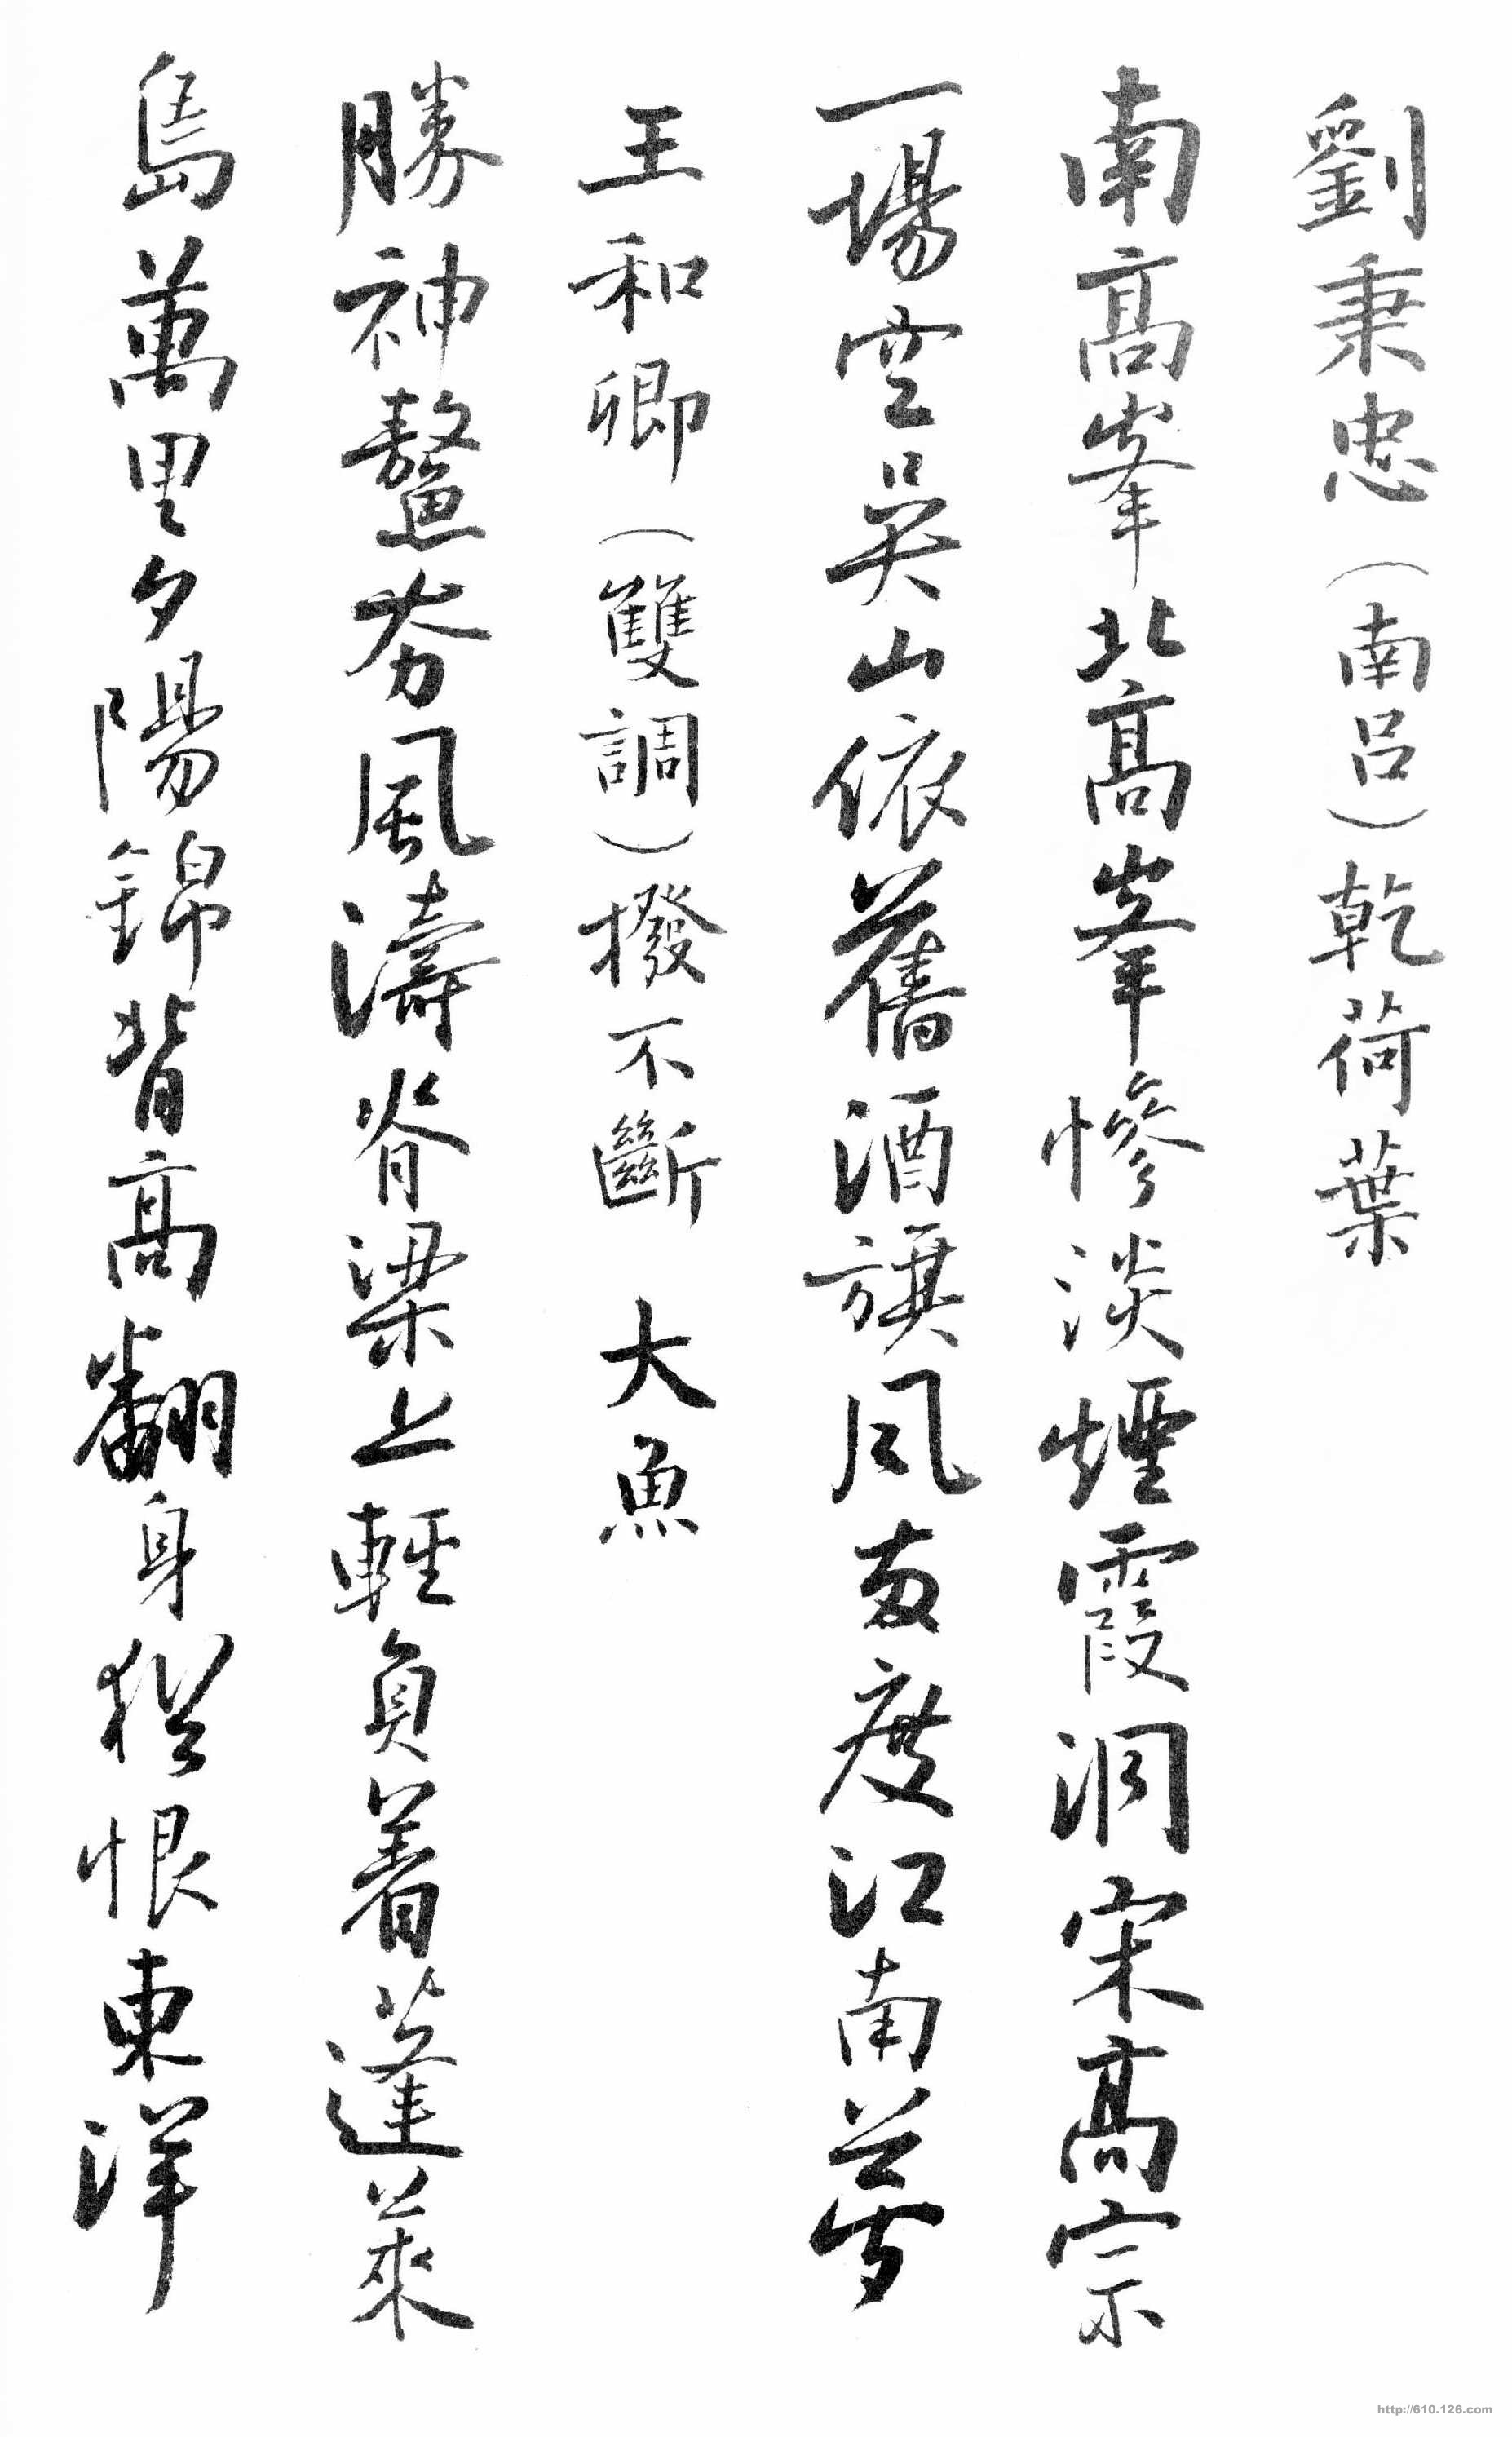 劉秉忠(南呂)乾荷葉
南高峯北高峯慘淡煙霞洞宋高宗
一場空吳山依舊酒旗風兩度江南夢
王和卿(雙調)撥不斷 大魚
勝神鰲夯風濤脊梁上輕負着蓬萊
島萬里夕陽錦背高翻身猶恨東洋
http://610.126.com